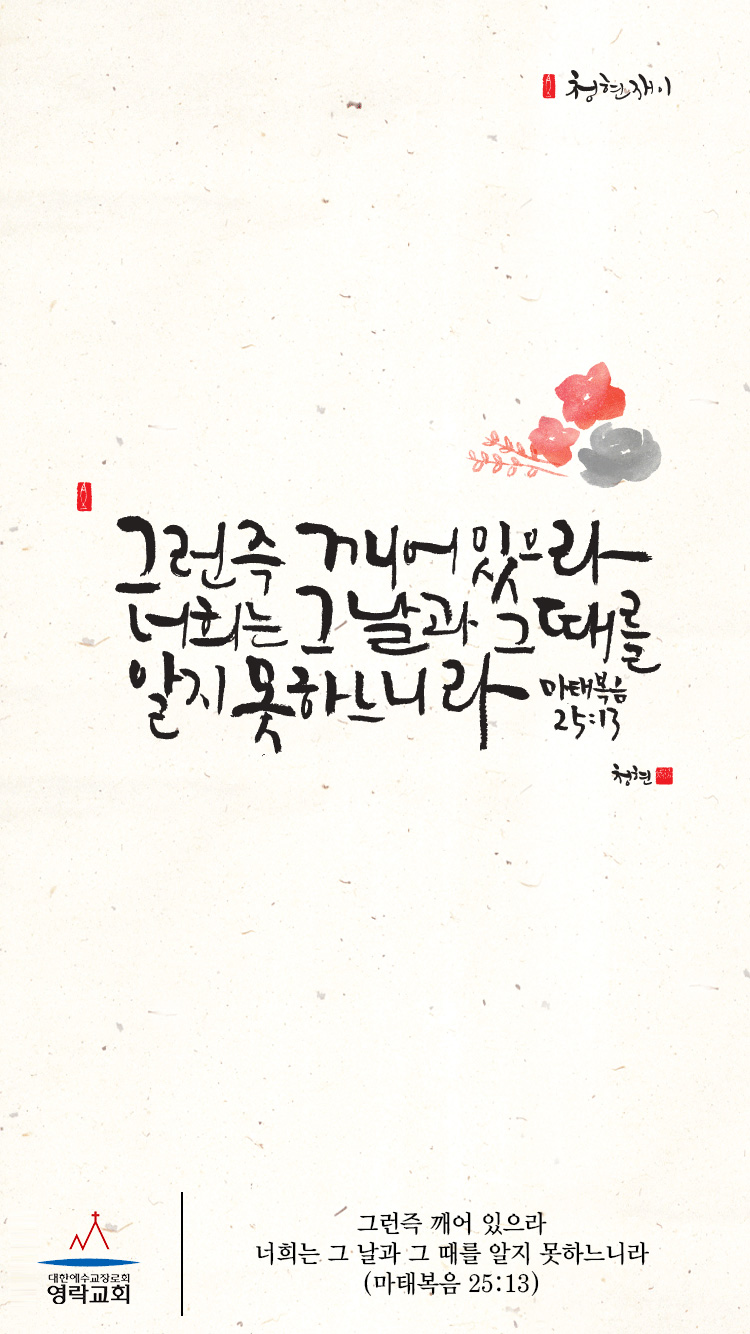 청현재이
그런즉 깨어 있으라
너희는 그 날과 그 때를
알지 못하느니라 마태복음
25:13
청현
대한예수교장로회
영락교회
그런즉 깨어 있으라
너희는 그 날과 그 때를 알지 못하느니라
(마태복음 25:13)